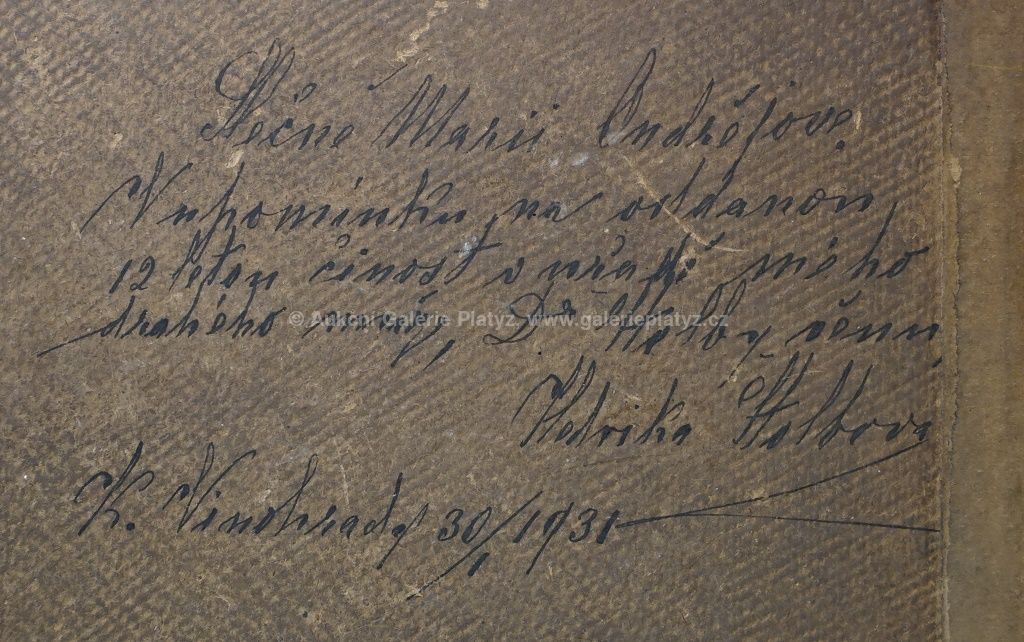 Slečně Marii Ondřejove.
Vzpomínku na oddanou
12 letou činost v uřadě mého
drahého muže, Dr Štolby věnu
Hedvika Štolbová
K. Vinohrady 30/1 1931
© Aukční Galerie Platýz, www.galerieplatyz.cz